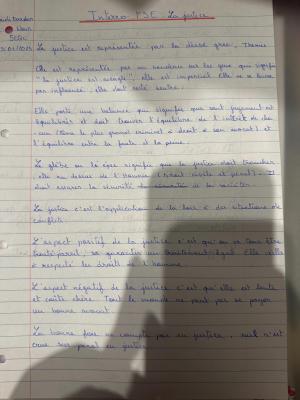 Interro PSE : La justice
La justice est représentée par la déesse grec, Themis
Elle est représentée par un bandeau sur les yeux qui signifie
"la justice est aveugle", elle est impartial Elle ne se laisse
pas influencé, elle doit resté neutre.
Elle porte une balance qui signifie que tout jugement est
équilibrée et doit trouver l'équilibre, de l'intérêt de cha-
cun (Même le plus grand criminel a droit à son avocat) et
l'équilibre entre la faute et la peine.
Le glaive ou la épée signifie que la justice doit trancher
elle au dessus de l'Homme (droit civile et pénal). Il
doit assurer la sécurité de la société
La justice c'est l'application de la lois à des situations de
conflits.
L'aspect positif de la justice c'est qu'on va tous être
traité pareil, va garantir un traitement égal. Elle veille
a respecté les droits de l'homme.
L'aspect négatif de la justice c'est qu'elle est lente
et coûte chère. Tout le monde ne peut pas se payer
un bonne avocat.
La bonne foi ne compte pas en justice, nul n'est
cru sur parole en justice.